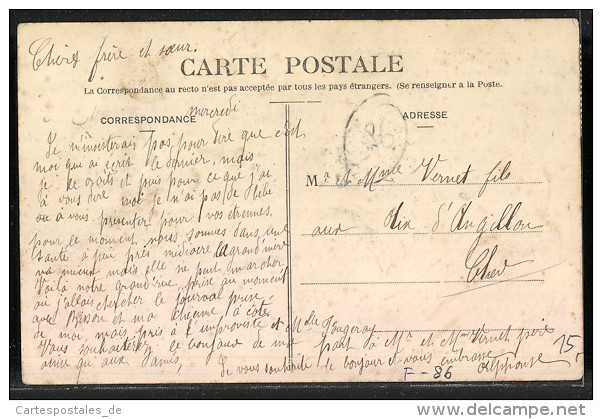 Chers frère et sœur.
CARTE POSTALE
La Correspondance au recto n'est pas acceptée par tous les pays étrangers. (Se renseigner à la Poste.
CORRESPONDANCE
mercredi
ADRESSE
Je n'insisterais pas pour dire que c'est
moi qui ai écrit le dernier, mais
je le crois et puis pour ce que j'ai
à vous dire moi je n'ai pas de
ou à vous présenter pour vos étrennes.
pour le moment nous sommes dans une
santé à peu près médiocre la grand'mère
va mieux mais elle ne peut marcher
Voilà notre grand'rue prise au moment
où j'allais chercher le journal prise
avec Bisson et ma chienne à côté
de moi, mais pris à l'improviste et Mlle Fougeray
Vous souhaiterez le bonjour de ma part à Mr et Mme Vernet père
ainsi qu'aux amis,
Je vous souhaite le bonjour et vous embrasse
Alphonse
Mr et Mme Vernet fils
aux Aix d'Angillon
Cher
F-86
15,
Cartespostales_de
www.delcampe.net